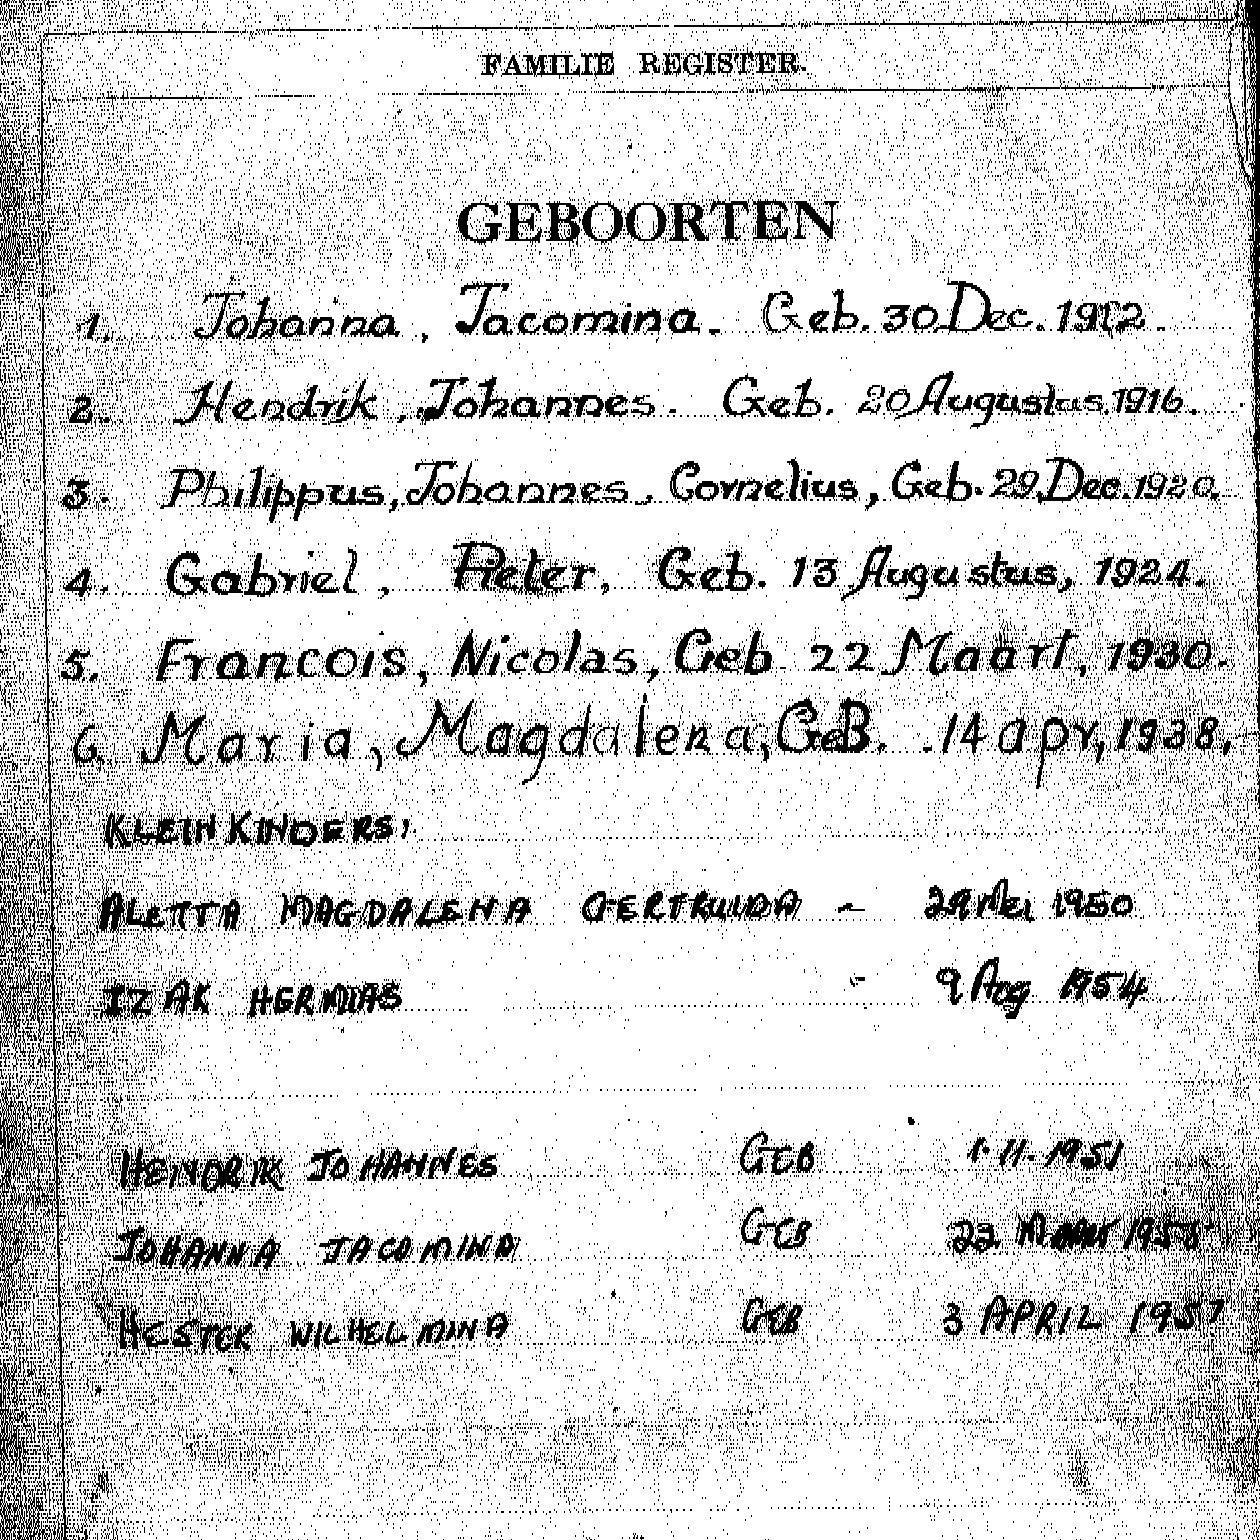 FAMILIE REGISTER.
GEBOORTEN
1. Johanna, Jacomina. Geb. 30 Dec. 1912.
2. Hendrik, Johannes. Geb. 20 Augustus, 1916.
3. Philippus, Johannes, Cornelius, Geb. 29, Dec. 1920.
4. Gabriel, Pieter, Geb. 13 Augustus, 1924.
5. Francois, Nicolas, Geb. 22 Maart, 1930.
6. Maria, Magdalena, GeB. 14 apr, 1938.
KLEIN KINDERS,
ALETTA MAGDALENA GERTRUIDA - 29 Mei 1950
IZAK HERMIAS - 9 Aug 1954
HENDRIK JOHANNES GEB 1.11.1951
JOHANNA JACOMINA GEB 22
HESTER WILHELMINA GEB 3 APRIL 1957